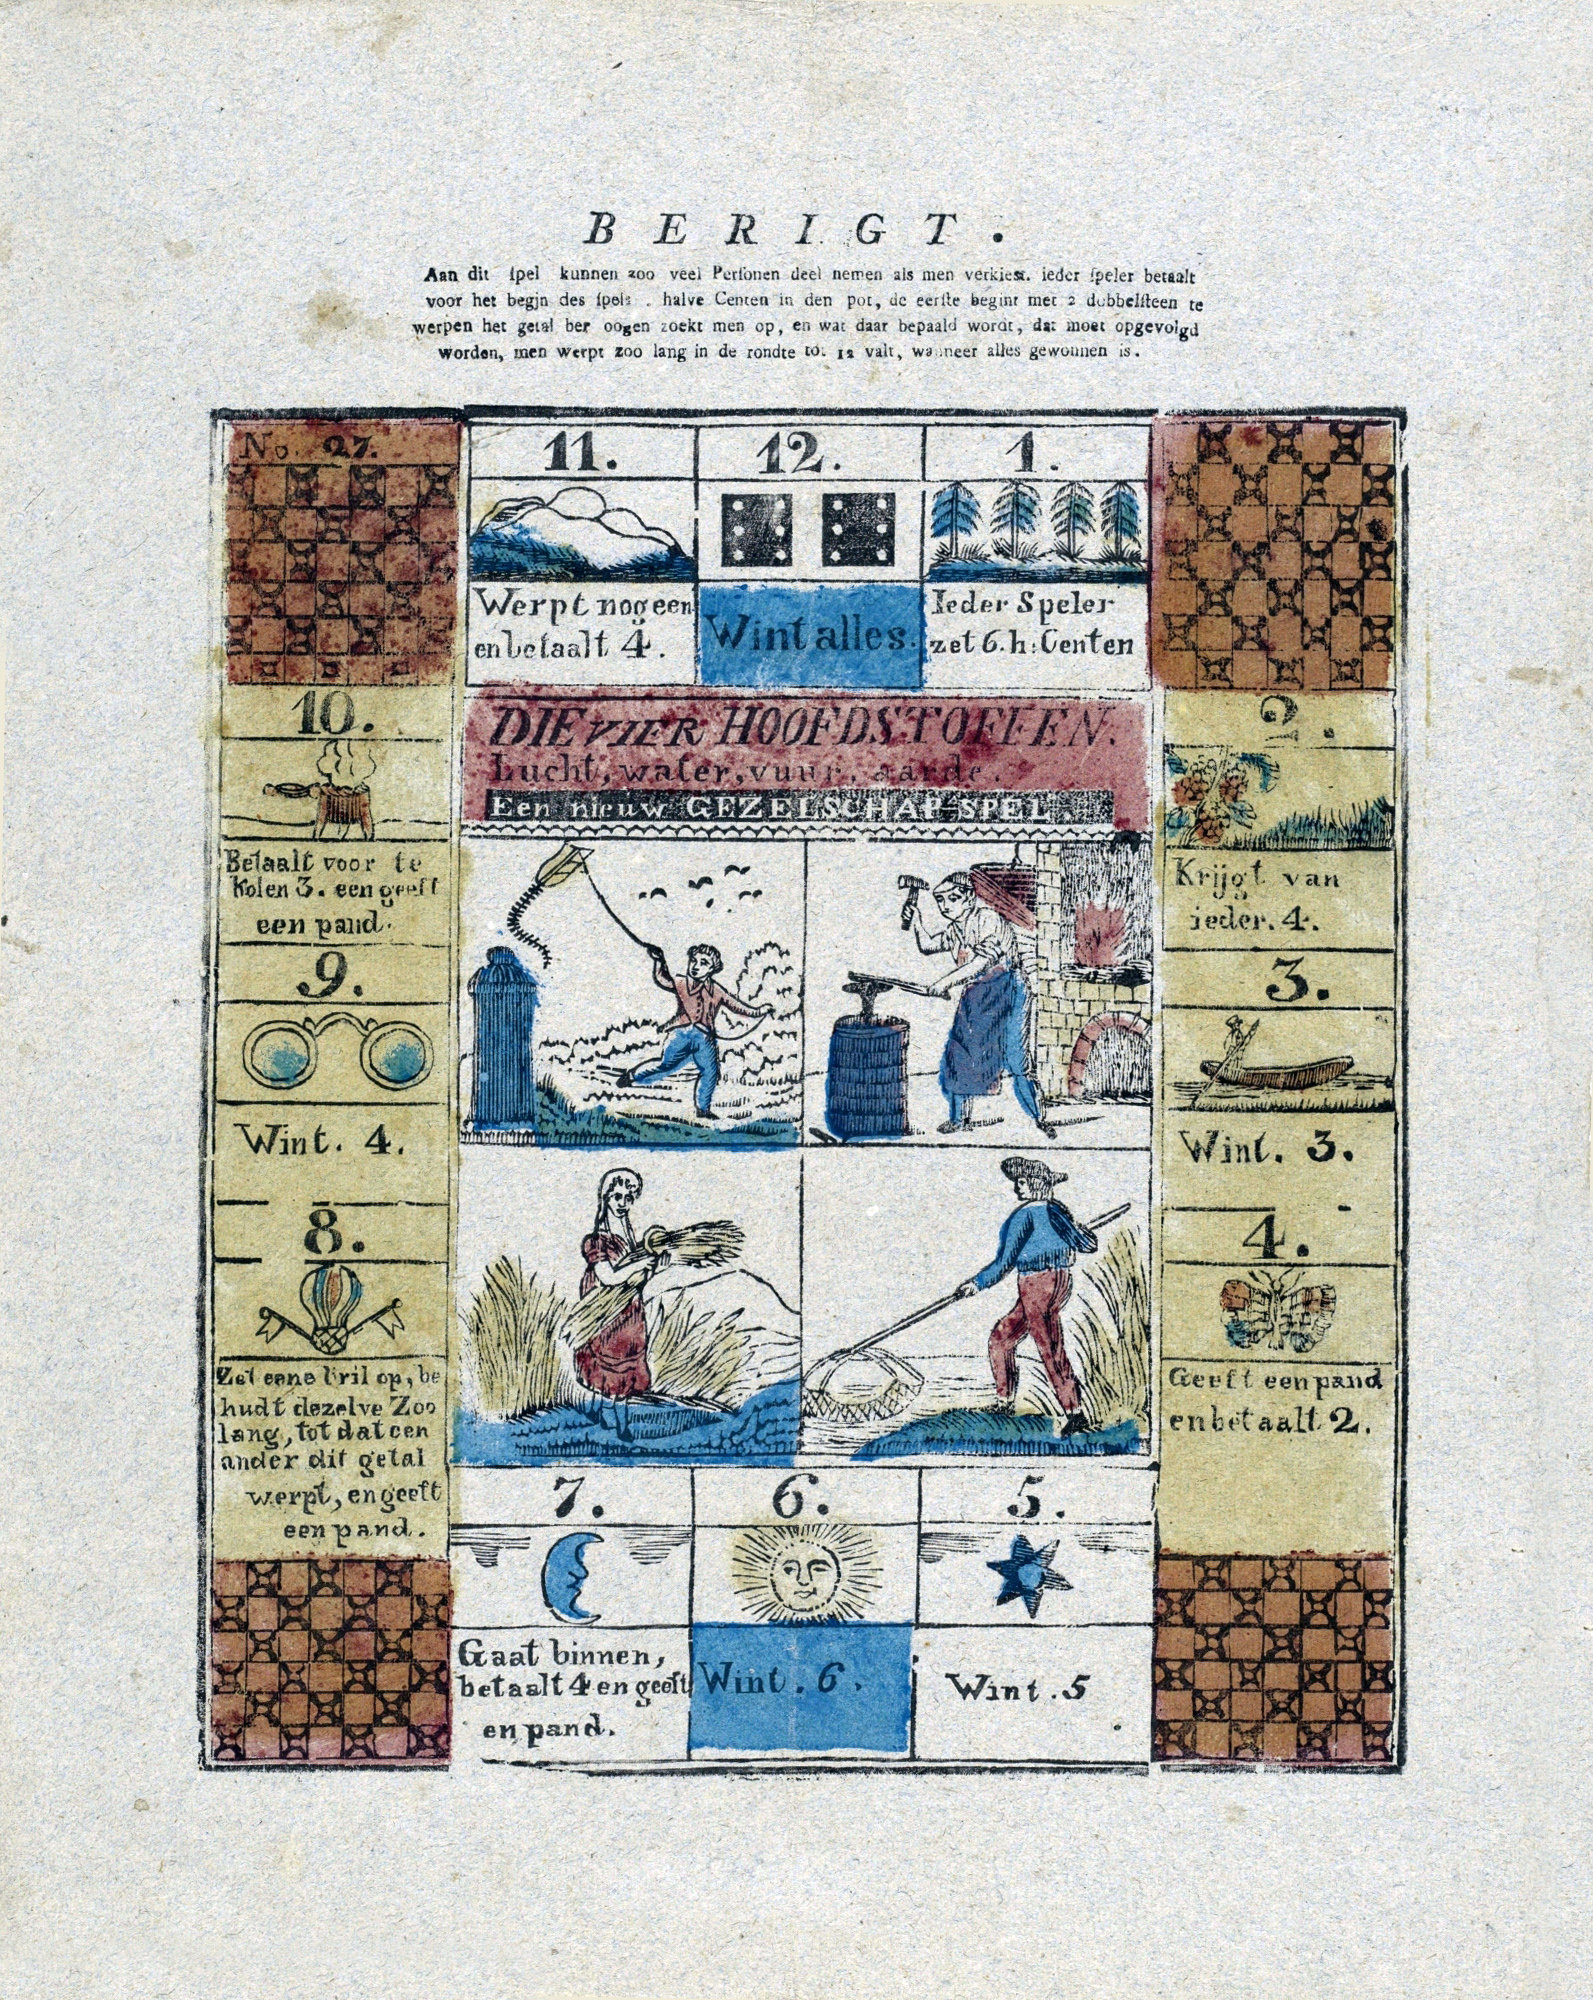 BERIGT.
Aan dit ſpel kunnen zoo veel Perſonen deel nemen als men verkiest. ieder ſpeler betaalt
voor het begjn des ſpels . halve Centen in den pot, de eerſte begint met 2 dobbelſteen te
werpen het getal ber oogen zoekt men op, en wat daar bepaald wordt, dat moet opgevolgd
worden, men werpt zoo lang in de rondte tot 12 valt, wanneer alles gewonnen is.
No. 27.
11.
Werpt nog een
en betaalt 4.
12.
Wint alles.
1.
Ieder Speler
zet 6. h: Centen
DIE VIER HOOFDSTOFFEN.
Lucht, water, vuur, aarde.
Een nieuw GEZELSCHAP-SPEL
10.
Betaalt voor te
Kolen 3. een geeft
een pand.
9.
Wint. 4.
8.
Zet eene bril op, be
hudt dezelve Zoo
lang, tot dat een
ander dit getal
werpt, en geeft
een pand.
2.
Krijgt van
ieder. 4.
3.
Wint. 3.
4.
Geeft een pand
en betaalt 2.
7.
Gaat binnen,
betaalt 4 en geeft
en pand.
6.
Wint. 6.
5.
Wint. 5